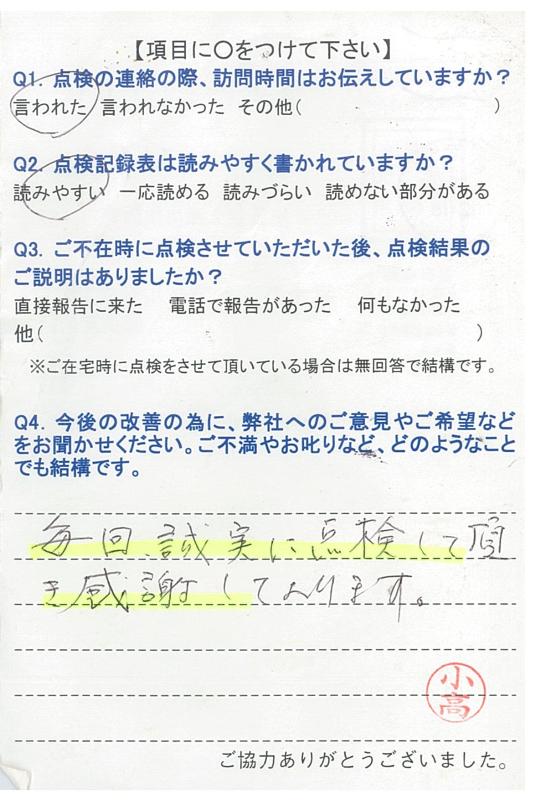 【項目に○をつけて下さい】
Q1. 点検の連絡の際、訪問時間はお伝えしていますか？
言われた 言われなかった その他( )
Q2. 点検記録表は読みやすく書かれていますか？
読みやすい 一応読める 読みづらい 読めない部分がある
Q3. ご不在時に点検させていただいた後、点検結果の
ご説明はありましたか？
直接報告に来た 電話で報告があった 何もなかった
他( )
※ご在宅時に点検をさせて頂いている場合は無回答で結構です。
Q4. 今後の改善の為に、弊社へのご意見やご希望など
をお聞かせください。ご不満やお叱りなど、どのようなこと
でも結構です。
毎回、誠実に点検して頂
き感謝しております。
小高
ご協力ありがとうございました。